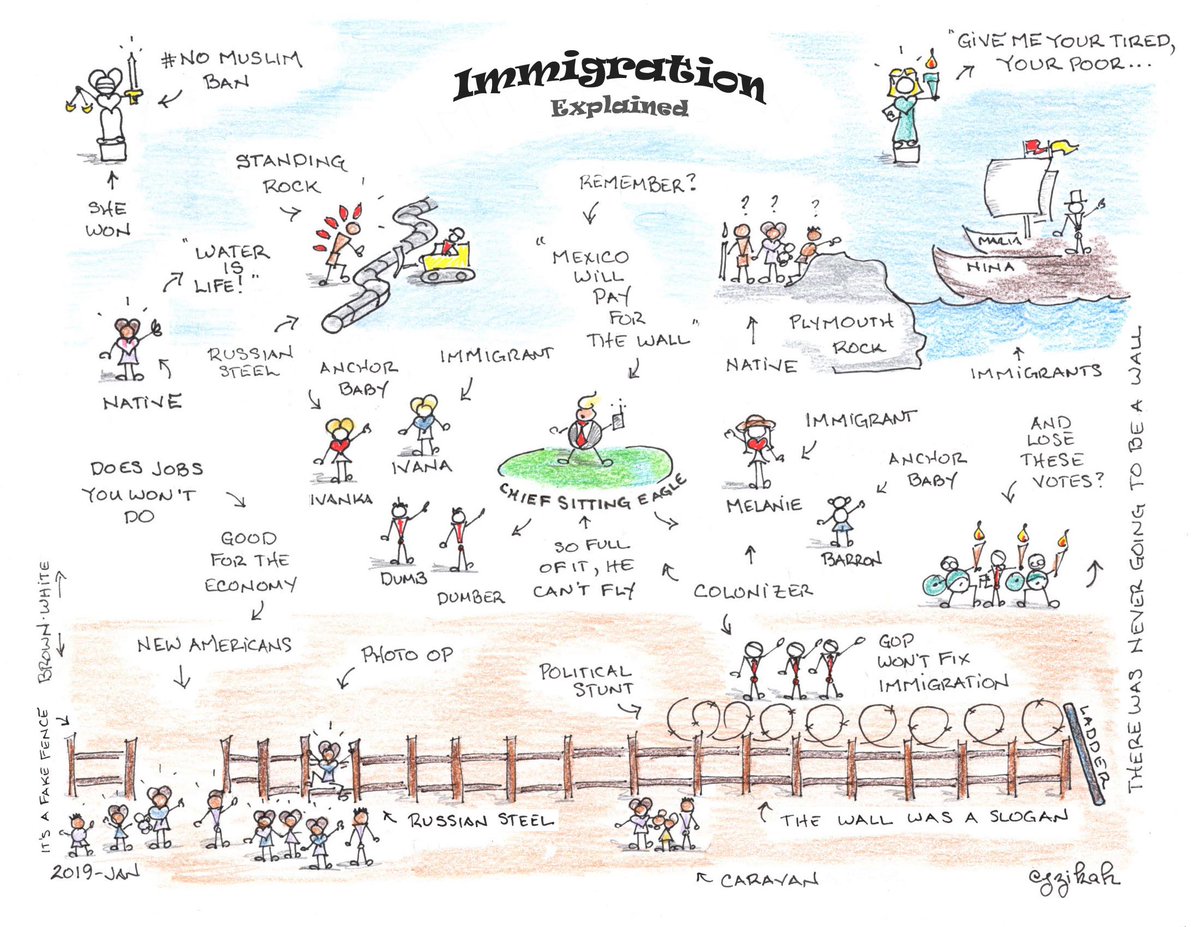 Immigration
Explained
#NO MUSLIM
BAN
SHE
WON
"GIVE ME YOUR TIRED,
YOUR POOR...
STANDING
ROCK
"WATER
IS
LIFE!"
NATIVE
RUSSIAN
STEEL
REMEMBER?
"MEXICO
WILL
PAY
FOR
THE WALL"
? ? ?
NATIVE
PLYMOUTH
ROCK
MARIA
NINA
IMMIGRANTS
ANCHOR
BABY
IMMIGRANT
IVANKA
IVANA
CHIEF SITTING EAGLE
SO FULL
OF IT, HE
CAN'T FLY
DUMB
DUMBER
IMMIGRANT
MELANIE
ANCHOR
BABY
BARRON
COLONIZER
AND
LOSE
THESE
VOTES?
DOES JOBS
YOU WON'T
DO
GOOD
FOR THE
ECONOMY
NEW AMERICANS
PHOTO OP
POLITICAL
STUNT
GOP
WON'T FIX
IMMIGRATION
LADDER
RUSSIAN STEEL
THE WALL WAS A SLOGAN
CARAVAN
IT'S A FAKE FENCE BROWN·WHITE
THERE WAS NEVER GOING TO BE A WALL
2019-JAN